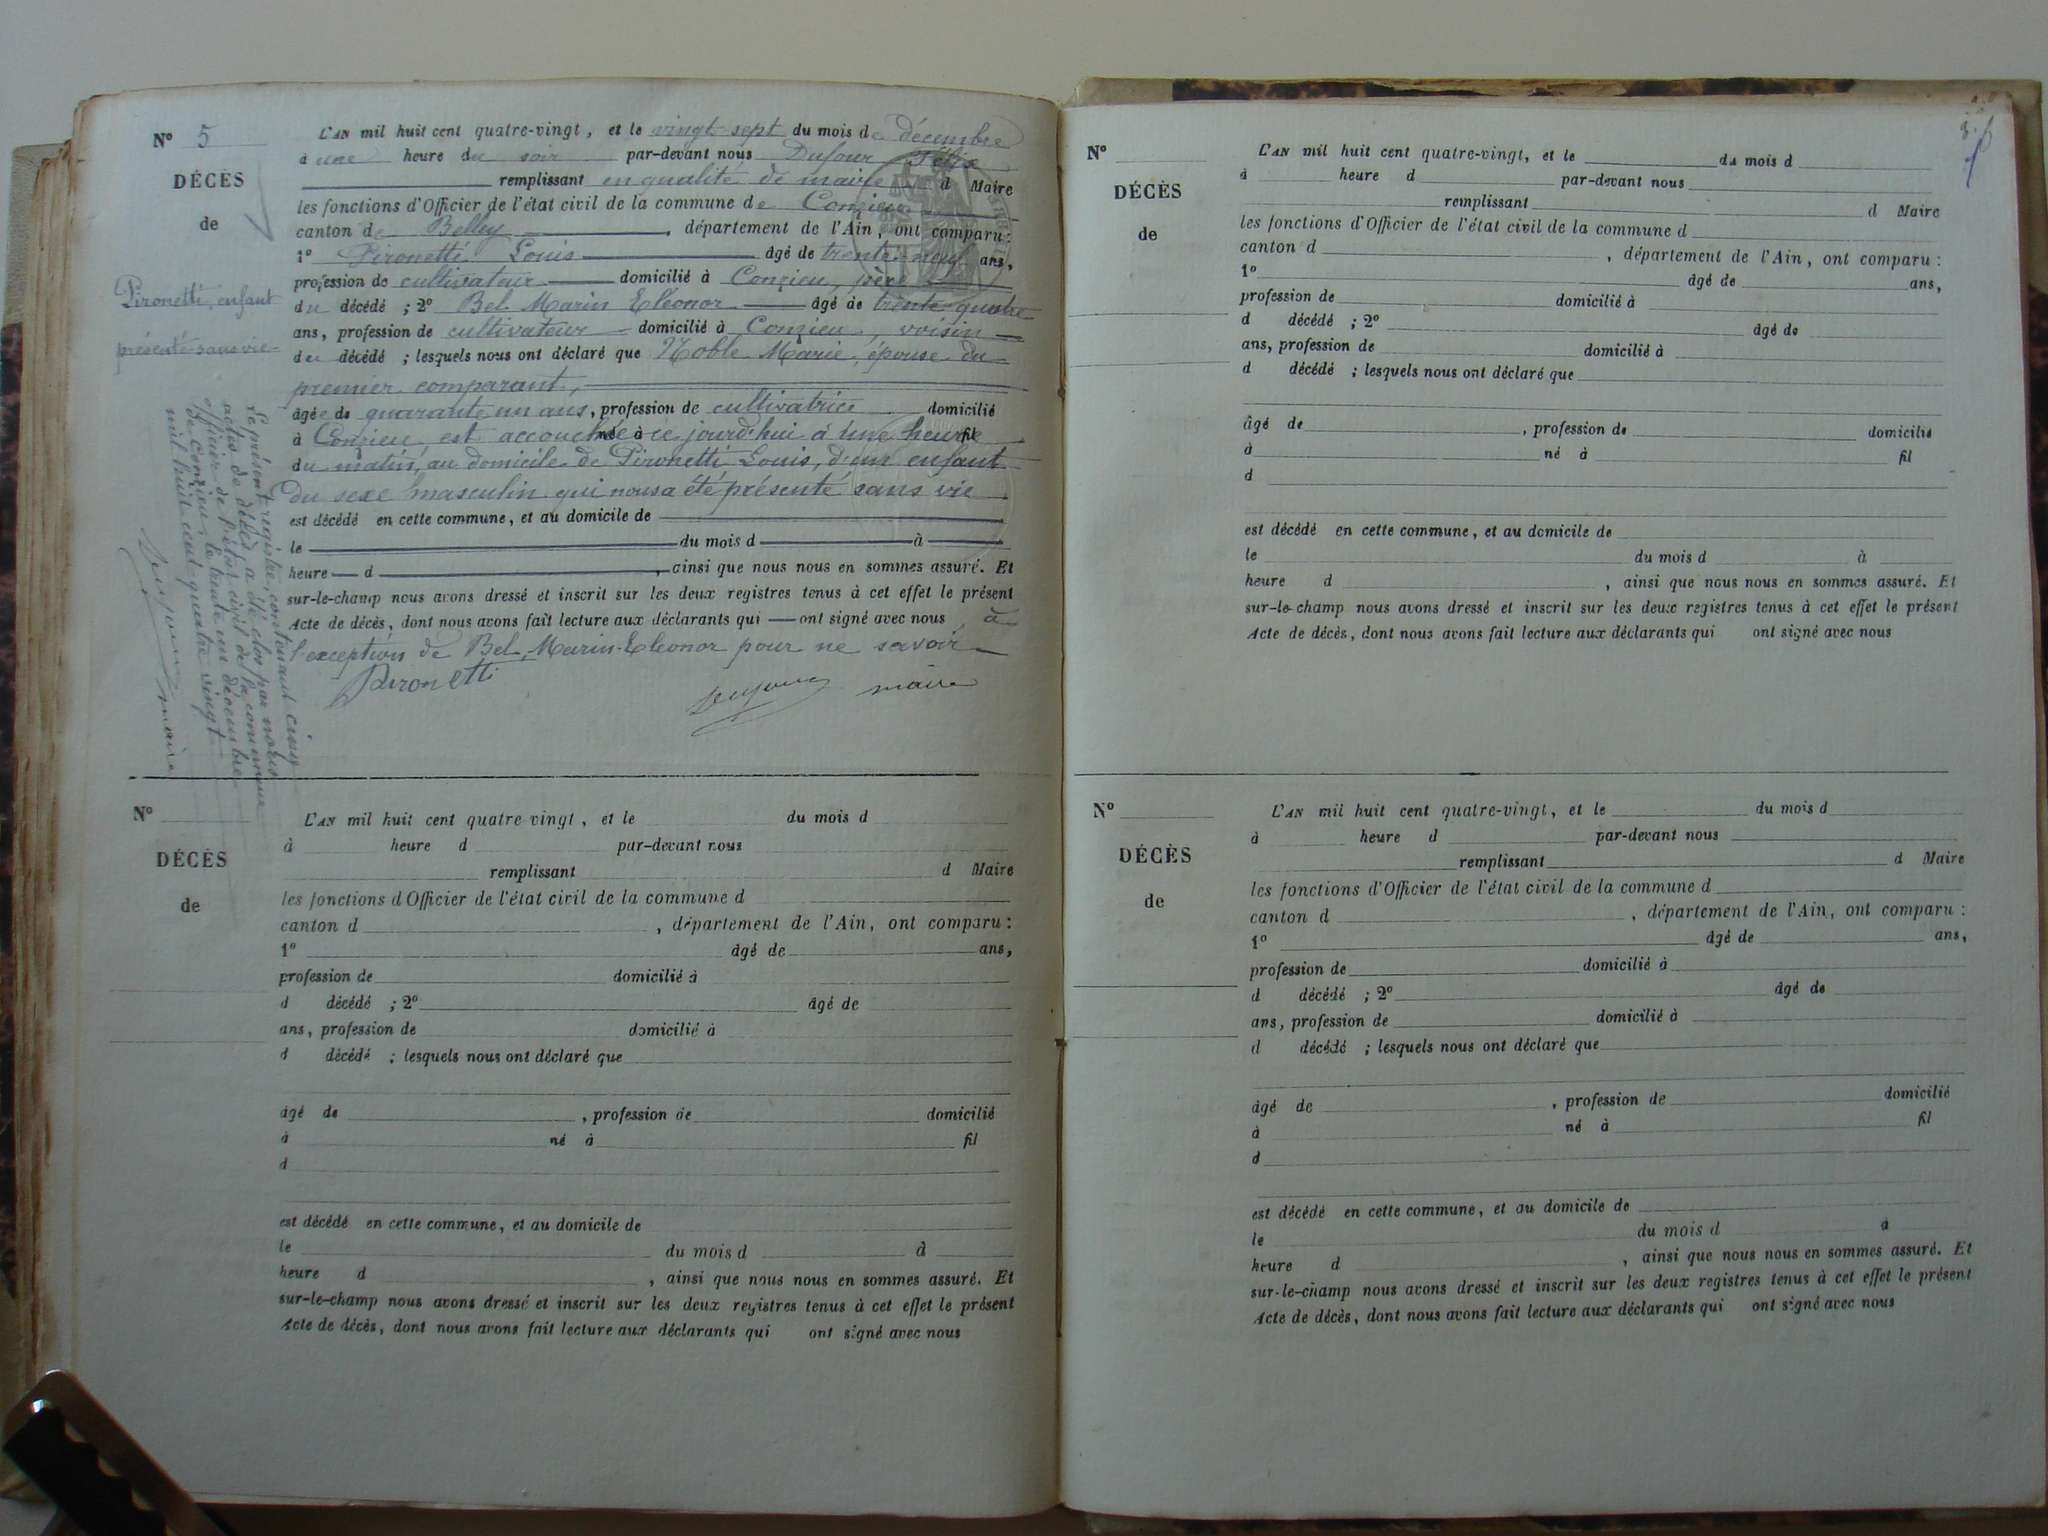 N° 5
DÉCÈS
de
Pironetti, enfant
présenté sans vie
L'AN mil huit cent quatre-vingt, et le vingt-sept du mois de décembre
à une heure du soir par-devant nous Dufour Félix
remplissant en qualité de maire d Maire
les fonctions d'Officier de l'état civil de la commune de Conzieu
canton de Belley, département de l'Ain, ont comparu :
1° Pironetti Louis âgé de trente-neuf ans,
profession de cultivateur domicilié à Conzieu, père
du décédé ; 2° Bel Marin Eléonor âgé de trente-quatre
ans, profession de cultivateur domicilié à Conzieu, voisin
du décédé ; lesquels nous ont déclaré que Noble Marie, épouse du
premier comparant,
âgée de quarante un ans, profession de cultivatrice domicilié
à Conzieu est accouchée né à ce jourd'hui à une heure fil
du matin, au domicile de Pironetti Louis, d'un enfant
du sexe masculin qui nous a été présenté sans vie
est décédé en cette commune, et au domicile de
le du mois d à
heure d , ainsi que nous nous en sommes assuré. Et
sur-le-champ nous avons dressé et inscrit sur les deux registres tenus à cet effet le présent
Acte de décès, dont nous avons fait lecture aux déclarants qui ont signé avec nous, à
l'exception de Bel Marin-Eleonor pour ne savoir
Pironetti
Dufour maire
Le présent registre contenant cinq
actes de décès a été clos par nous
officier de l'état civil de la commune
de Conzieu le trente un décembre
mil huit cent quatre vingt
Dufour maire
N°
DÉCÈS
de
L'AN mil huit cent quatre-vingt, et le du mois d
à heure d par-devant nous
remplissant d Maire
les fonctions d'Officier de l'état civil de la commune d
canton d , département de l'Ain, ont comparu :
1° âgé de ans,
profession de domicilié à
d décédé ; 2° âgé de
ans, profession de domicilié à
d décédé ; lesquels nous ont déclaré que
âgé de , profession de domicilié
à né à fil
d
est décédé en cette commune, et au domicile de
le du mois d à
heure d , ainsi que nous nous en sommes assuré. Et
sur-le-champ nous avons dressé et inscrit sur les deux registres tenus à cet effet le présent
Acte de décès, dont nous avons fait lecture aux déclarants qui ont signé avec nous
N°
DÉCÈS
de
L'AN mil huit cent quatre-vingt, et le du mois d
à heure d par-devant nous
remplissant d Maire
les fonctions d'Officier de l'état civil de la commune d
canton d , département de l'Ain, ont comparu :
1° âgé de ans,
profession de domicilié à
d décédé ; 2° âgé de
ans, profession de domicilié à
d décédé ; lesquels nous ont déclaré que
âgé de , profession de domicilié
à né à fil
d
est décédé en cette commune, et au domicile de
le du mois d à
heure d , ainsi que nous nous en sommes assuré. Et
sur-le-champ nous avons dressé et inscrit sur les deux registres tenus à cet effet le présent
Acte de décès, dont nous avons fait lecture aux déclarants qui ont signé avec nous
N°
DÉCÈS
de
L'AN mil huit cent quatre-vingt, et le du mois d
à heure d par-devant nous
remplissant d Maire
les fonctions d'Officier de l'état civil de la commune d
canton d , département de l'Ain, ont comparu :
1° âgé de ans,
profession de domicilié à
d décédé ; 2° âgé de
ans, profession de domicilié à
d décédé ; lesquels nous ont déclaré que
âgé de , profession de domicilié
à né à fil
d
est décédé en cette commune, et au domicile de
le du mois d à
heure d , ainsi que nous nous en sommes assuré. Et
sur-le-champ nous avons dressé et inscrit sur les deux registres tenus à cet effet le présent
Acte de décès, dont nous avons fait lecture aux déclarants qui ont signé avec nous